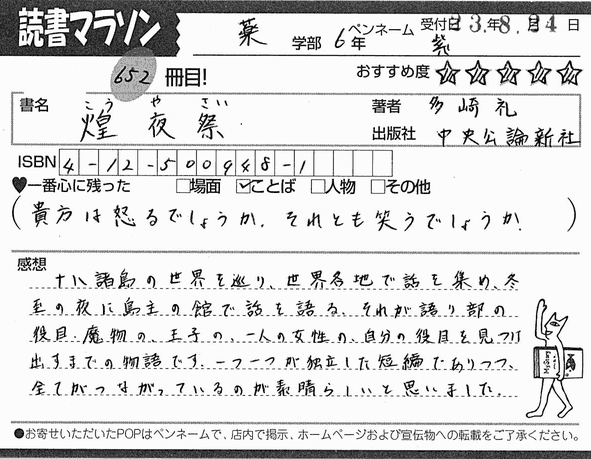 読書マラソン
薬 学部 6年 ペンネーム 紫 受付日 23.年8.月24日
652冊目! おすすめ度 ☆☆☆☆☆
書名 煌夜祭 こうやさい 著者 多崎礼
出版社 中央公論新社
ISBN 4-12-500948-1
♥一番心に残った □場面 ☑ことば □人物 □その他
(貴方は怒るでしょうか、それとも笑うでしょうか。)
感想
十八諸島の世界を巡り、世界各地で話を集め、冬
至の夜に島主の館で話を語る、それが語り部の
役目。魔物の、王子の、一人の女性の、自分の役目を見つけ
出すまでの物語です。一つ一つが独立した短編でありつつ、
全てがつながっているのが素晴らしいと思いました。
●お寄せいただいたPOPはペンネームで、店内で掲示、ホームページおよび宣伝物への転載をご了承ください。